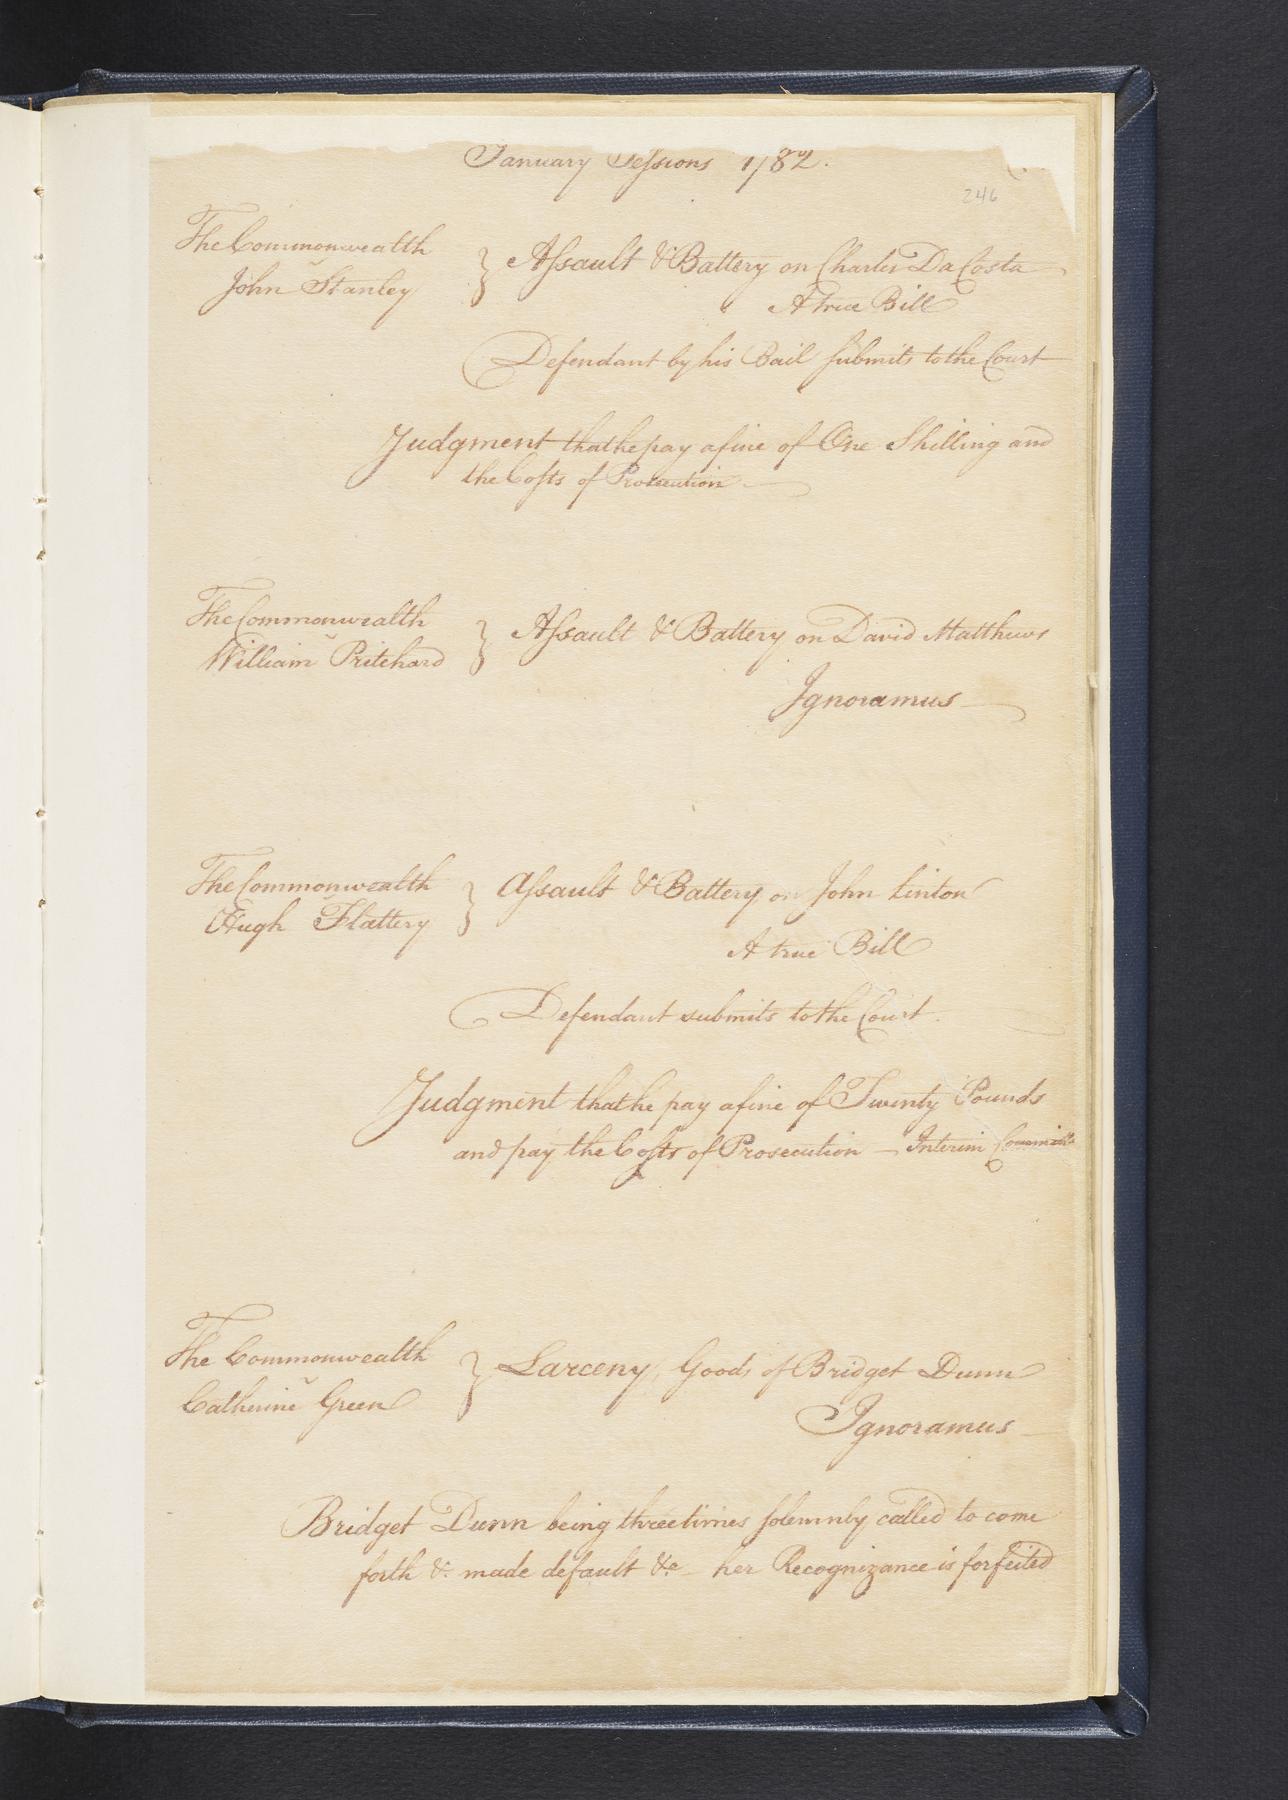 January Sessions 1782.
246
The Commonwealth
v
John Stanley
} Assault & Battery on Charles Da Costa
A true Bill
Defendant by his Bail submits to the Court
Judgment that he pay a fine of One Shilling and
the Costs of Prosecution
The Commonwealth
v
William Pritchard
} Assault & Battery on David Matthews
Ignoramus
The Commonwealth
v
Hugh Flattery
} Assault & Battery on John Linton
A true Bill
Defendant submits to the Court.
Judgment that he pay a fine of Twenty Pounds
and pay the Costs of Prosecution – Interim
The Commonwealth
v
Catherine Green
} Larceny, Goods of Bridget Dunn
Ignoramus
Bridget Dunn being three times solemnly called to come
forth &c made default &c her Recognizance is forfeited